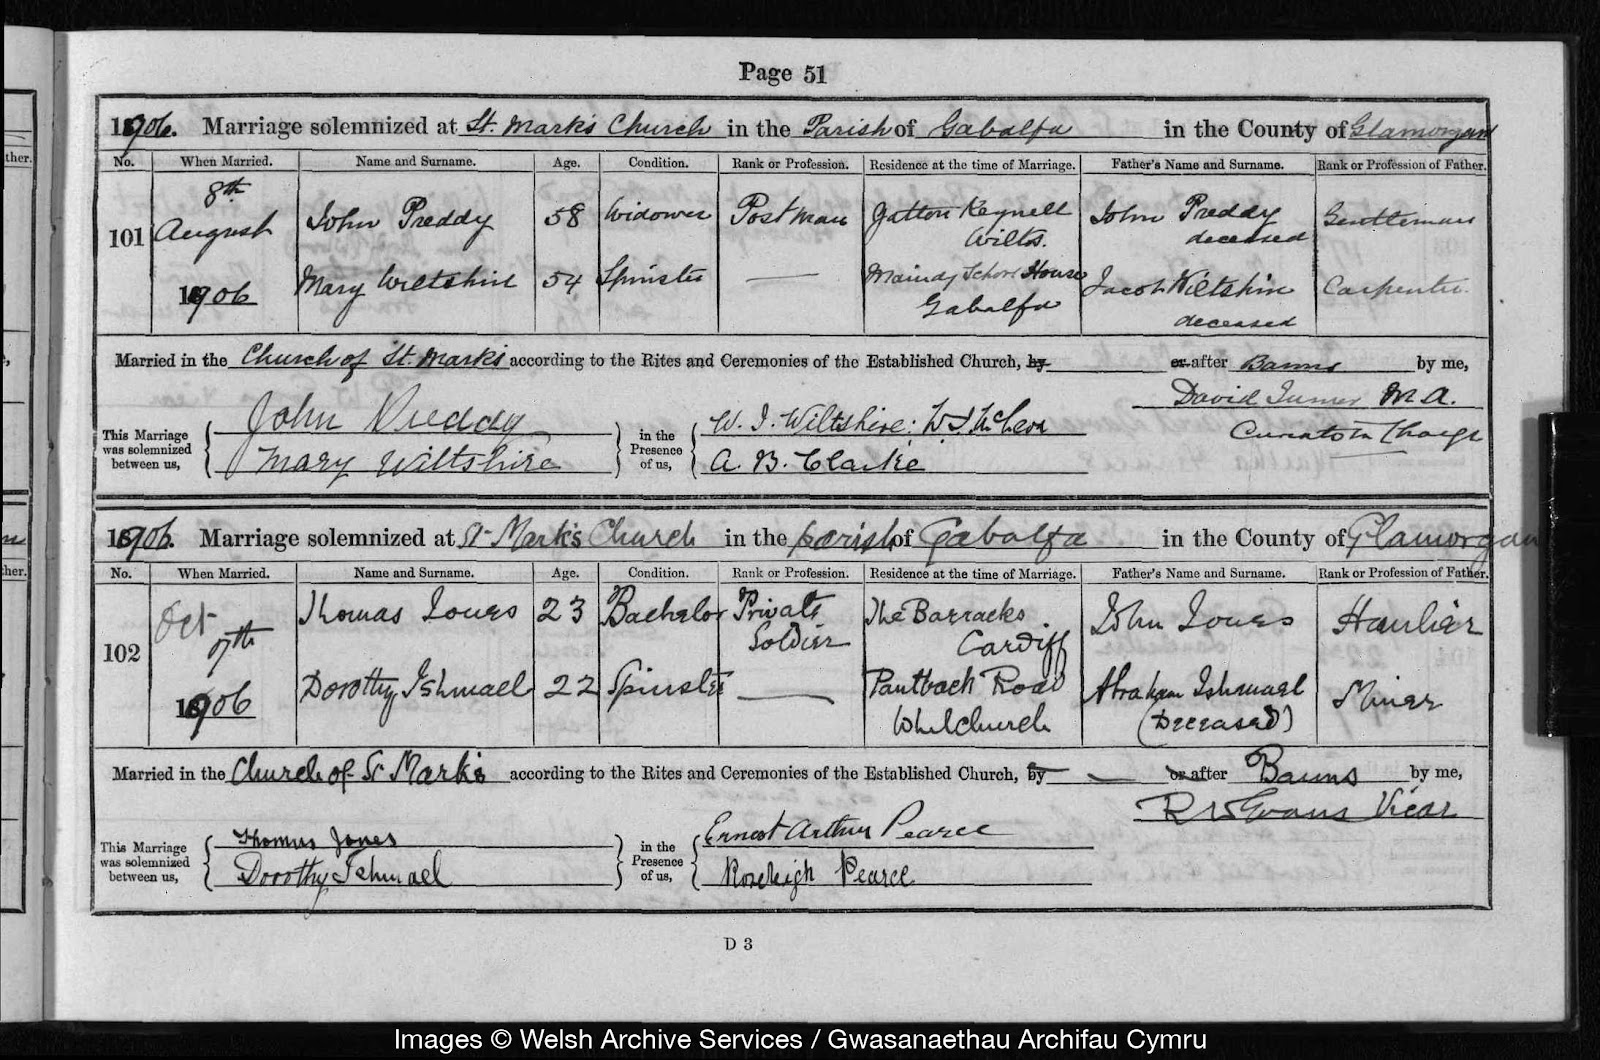 Page 51
1906. Marriage solemnized at St. Mark's Church in the Parish of Gabalfa in the County of Glamorgan
No. When Married. Name and Surname. Age. Condition. Rank or Profession. Residence at the time of Marriage. Father's Name and Surname. Rank or Profession of Father.
101 8th August 1906 John Preddy 58 Widower Postman Yatton Keynell Wilts. John Preddy deceased Gentleman
Mary Wiltshire 54 Spinster — Maindy School House Gabalfa Jacob Wiltshire deceased Carpenter
Married in the Church of St. Mark's according to the Rites and Ceremonies of the Established Church, by or after Banns by me,
David M.A.
Curate in Charge
This Marriage was solemnized between us,
John Preddy
Mary Wiltshire
in the Presence of us,
W. J. Wiltshire:
A. B. Clarke
1906. Marriage solemnized at St Mark's Church in the parish of Gabalfa in the County of Glamorgan
No. When Married. Name and Surname. Age. Condition. Rank or Profession. Residence at the time of Marriage. Father's Name and Surname. Rank or Profession of Father.
102 Oct 7th 1906 Thomas Jones 23 Bachelor Private Soldier The Barracks Cardiff John Jones Haulier
Dorothy Ishmael 22 Spinster — Pantbach Road Whitchurch Abraham Ishmael (Deceased) Miner
Married in the Church of St Mark's according to the Rites and Ceremonies of the Established Church, by — or after Banns by me,
Evans Vicar
This Marriage was solemnized between us,
Thomas Jones
Dorothy Ishmael
in the Presence of us,
Ernest Arthur Pearce
Roseleigh Pearce
D 3
Images © Welsh Archive Services / Gwasanaethau Archifau Cymru